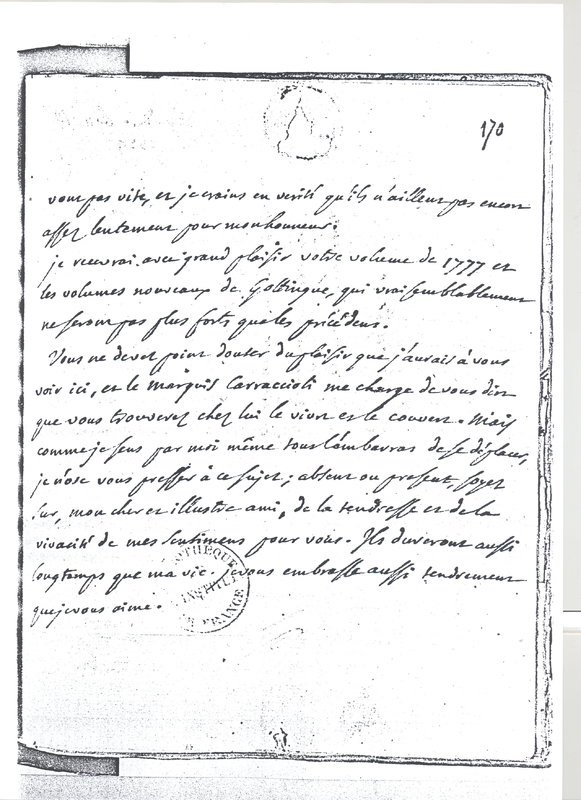 170
vont pas vite, et je crains en verité qu'ils n'aillent pas encore
assez lentement pour mon honneur.
je recevrai avec grand plaisir votre volume de 1777 et
les volumes nouveaux de Gottingue, qui vraisemblablement
ne seront pas plus forts que les précédens.
Vous ne devez point douter du plaisir que j'aurais à vous
voir ici, et le marquis Carraccioli me charge de vous dire
que vous trouverez chez lui le vivre et le couvert. Mais
comme je sens par moi même tous l'embarras de se déplacer,
je n'ose vous presser à ce sujet; absent ou present soyez
sur, mon cher et illustre ami, de la tendresse et de la
vivacité de mes sentimens pour vous. Ils dureront aussi
longtemps que ma vie. je vous embrasse aussi tendrement
que je vous aime.
BIBLIOTHEQUE
INSTITUT
DE FRANCE